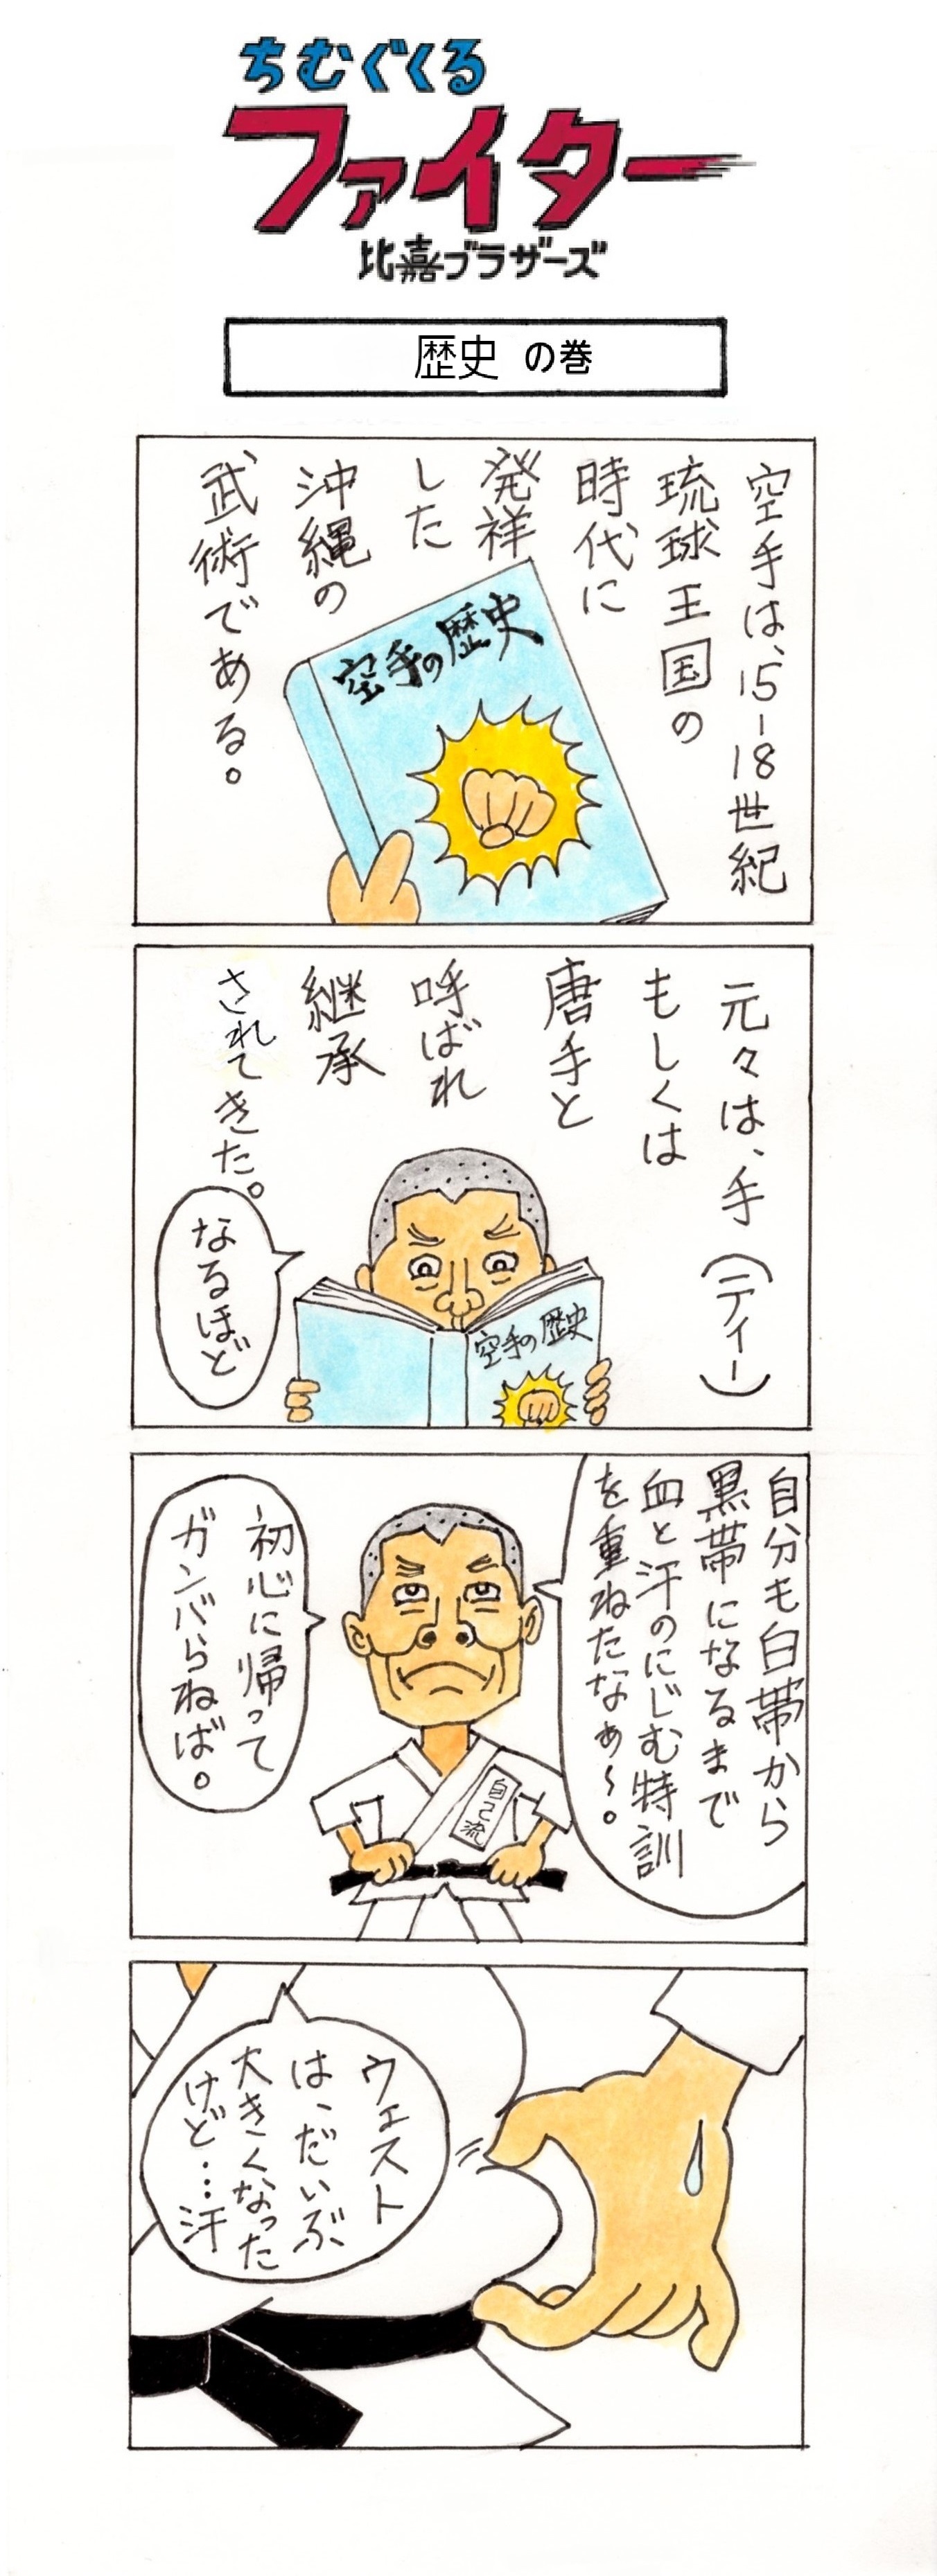 ちむぐくる
ファイター
比嘉ブラザーズ
歴史 の巻
空手は、15-18世紀
琉球王国の
時代に
発祥
した
沖縄の
武術である。
空手の歴史
元々は、手(ティー)
もしくは
唐手と
呼ばれ
継承
されてきた。
なるほど
空手の歴史
自分も白帯から
黒帯になるまで
血と汗のにじむ特訓
を重ねたなぁ〜。
初心に帰って
ガンバらねば。
自己流
ウェスト
は、だいぶ
大きくなった
けど…汗